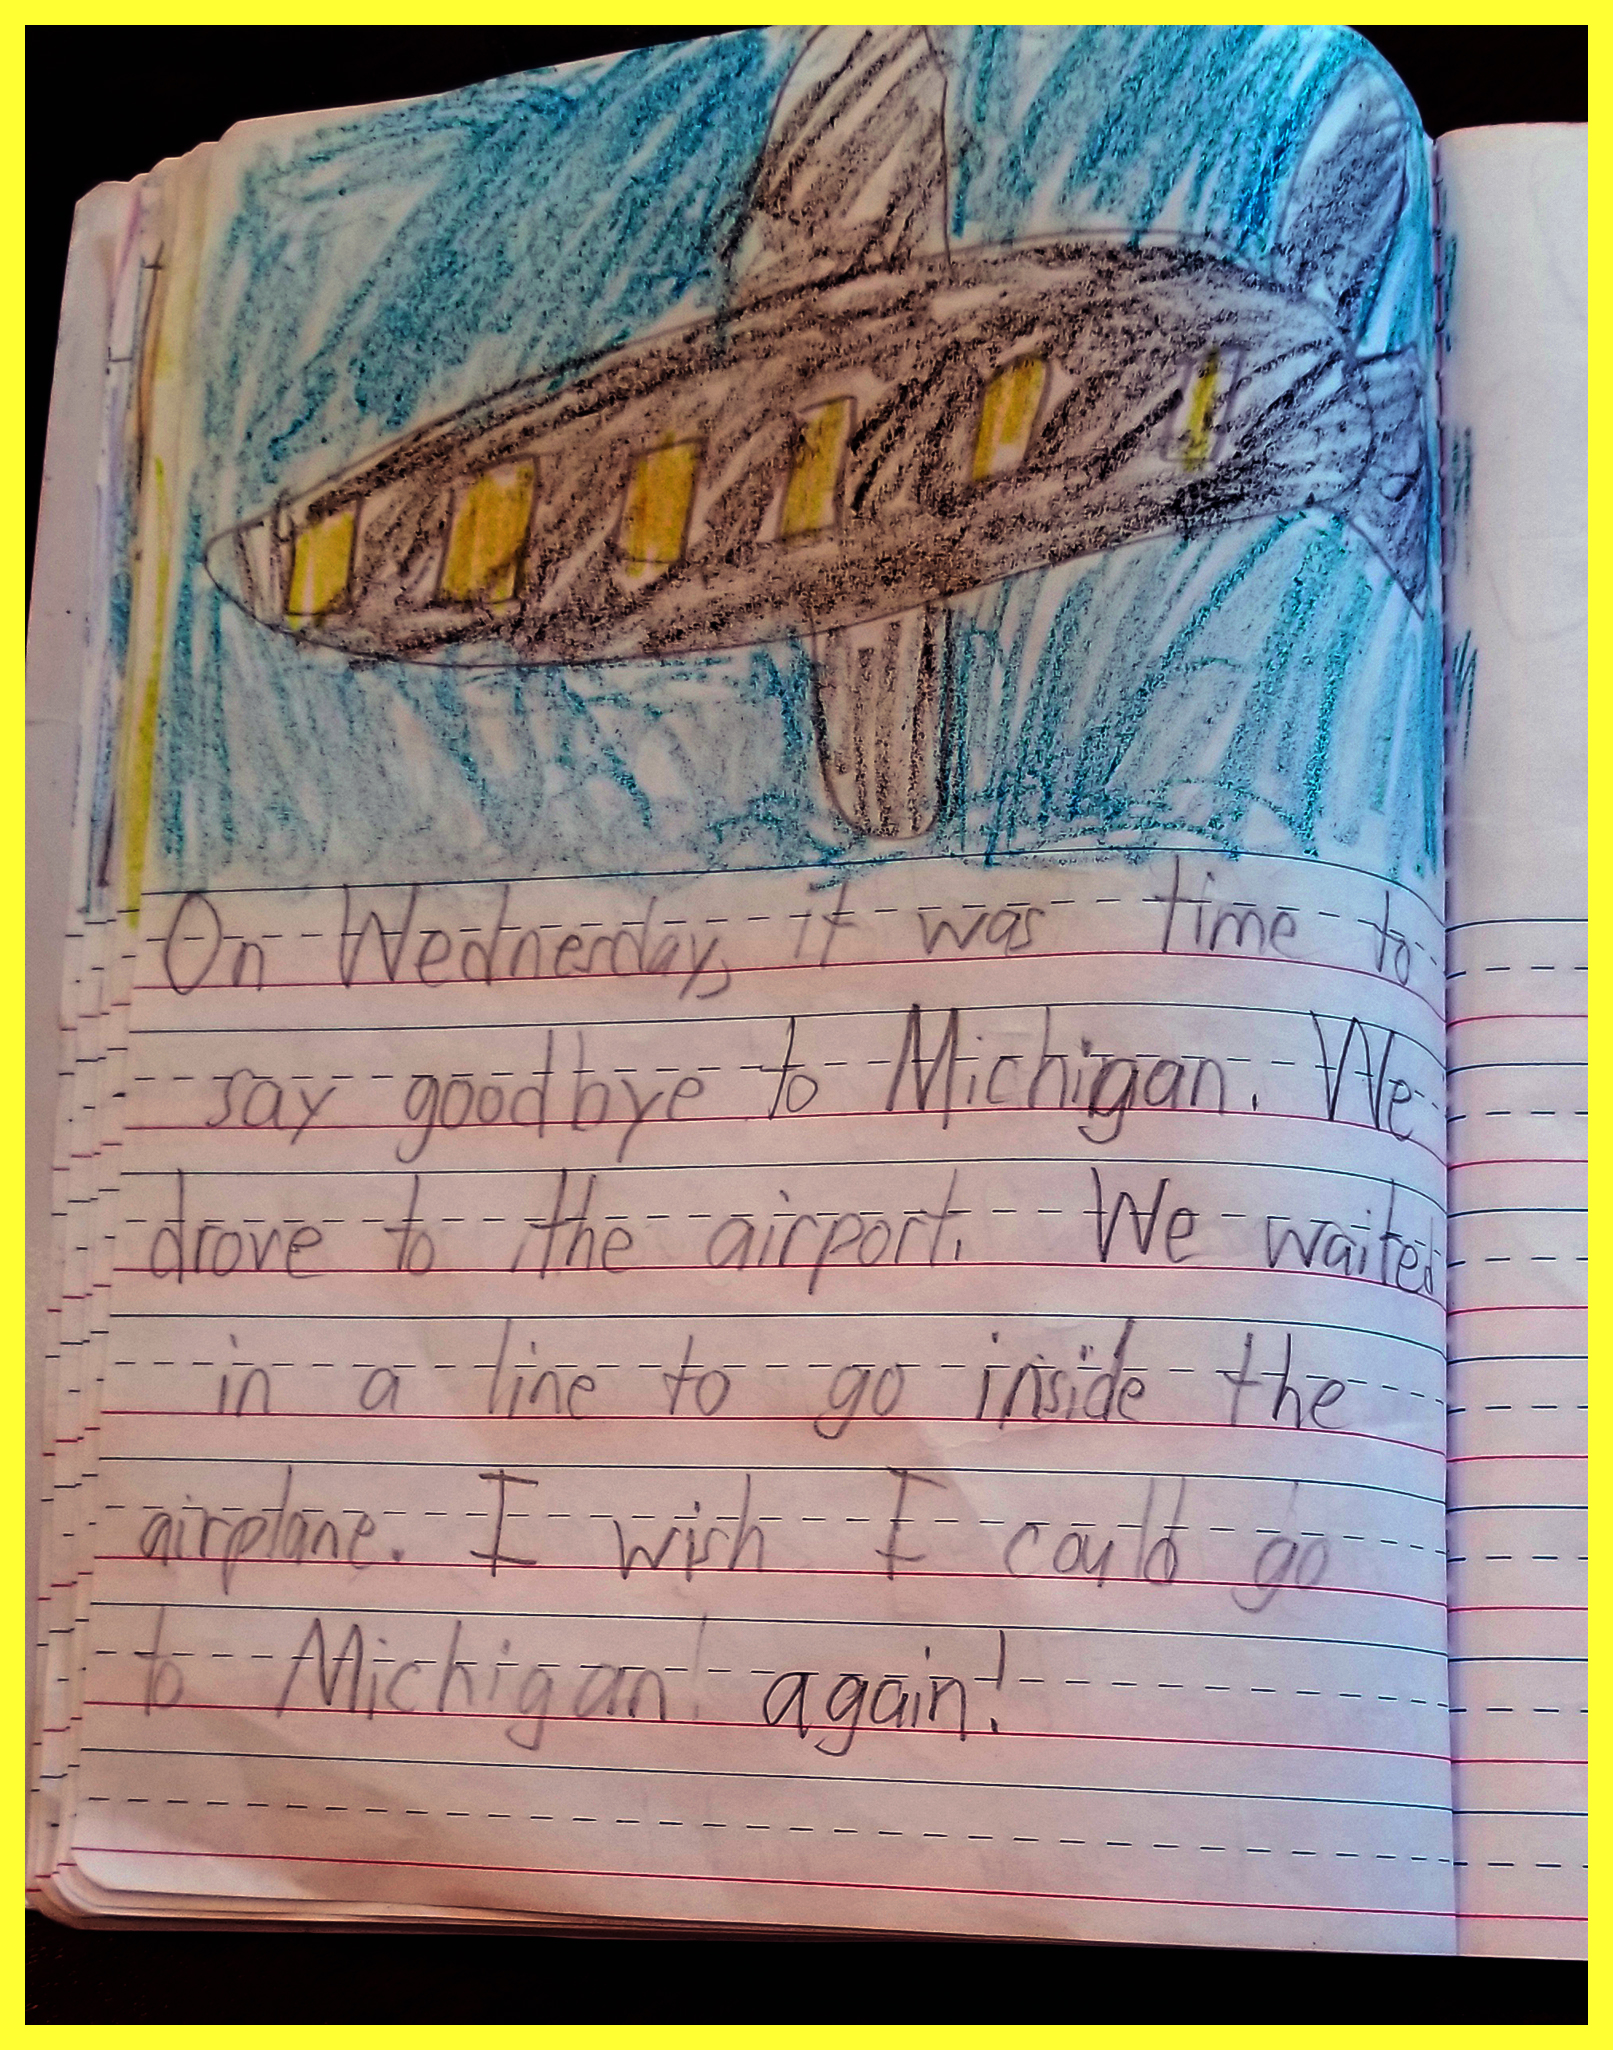 On Wednesday, it was time to
say goodbye to Michigan. We
drove to the airport. We waited
in a line to go inside the
airplane. I wish I could go
to Michigan! again!